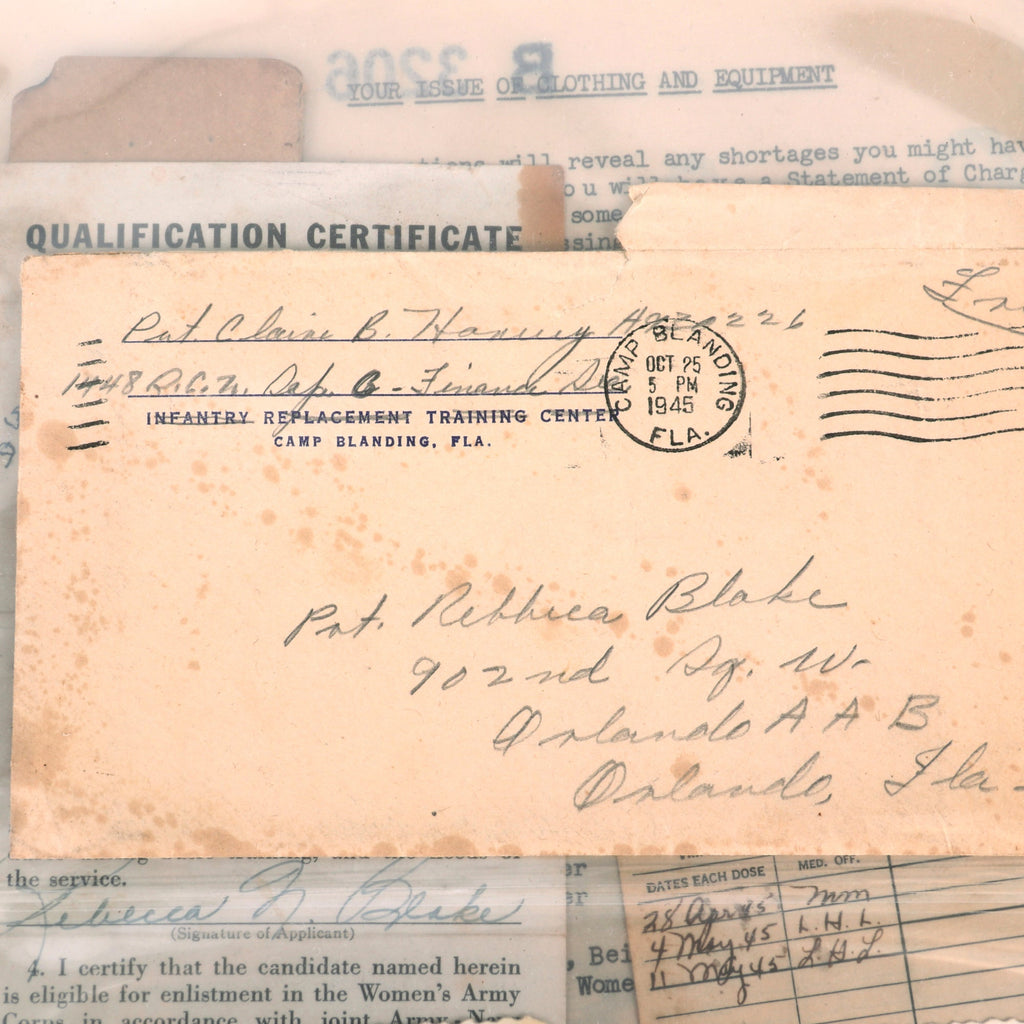 B 3206
YOUR ISSUE OF CLOTHING AND EQUIPMENT
will reveal any shortages you might hav
ou will have a Statement of Charg
some
ssing
QUALIFICATION CERTIFICATE
Pvt Claire B. Harvey
Fre
1448 S.C.U. Sep. C - Finance
INFANTRY REPLACEMENT TRAINING CENTER
CAMP BLANDING, FLA.
CAMP BLANDING
OCT 25
5 PM
1945
FLA.
Pvt. Rebbeca Blake
902nd Sq. W-
Orlando A A B
Orlando, Fla-
the service.
Rebecca N. Blake
(Signature of Applicant)
4. I certify that the candidate named herein
is eligible for enlistment in the Women's Army
Corps in accordance with joint Army-Navy
er
er
, Bei
Wome
DATES EACH DOSE
MED. OFF.
28 Apr 45 mm
4 May 45 L.H.L.
11 May 45 L.H.L.